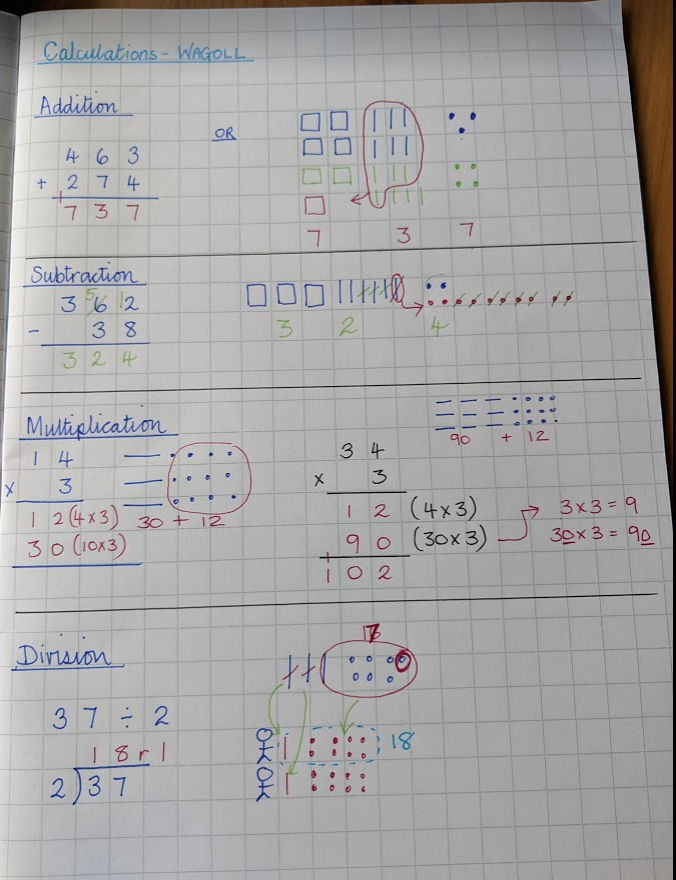 Calculations - WAGOLL
Addition
OR
4 6 3
+ 2 7 4
1
7 3 7
7 3 7
Subtraction
3 5 6 12
- 3 8
3 2 4
3 2 4
Multiplication
1 4
x 3
1 2 (4x3)
3 0 (10x3)
30 + 12
3 4
x 3
1 2 (4x3)
9 0 (30x3)
1
1 0 2
90 + 12
3x3 = 9
30x3 = 90
Division
37 ÷ 2
1 8 r 1
2)37
18